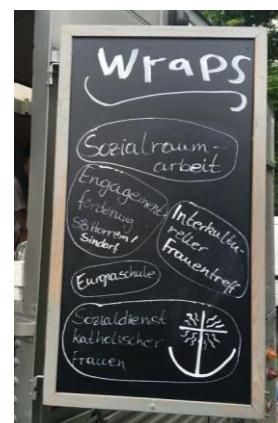 Wraps
Sozialraum-
arbeit
Engagement-
förderung
SB Horrem/
Sindorf
Interkultu-
reller
Frauentreff
Europaschule
Sozialdienst
katholischer
Frauen